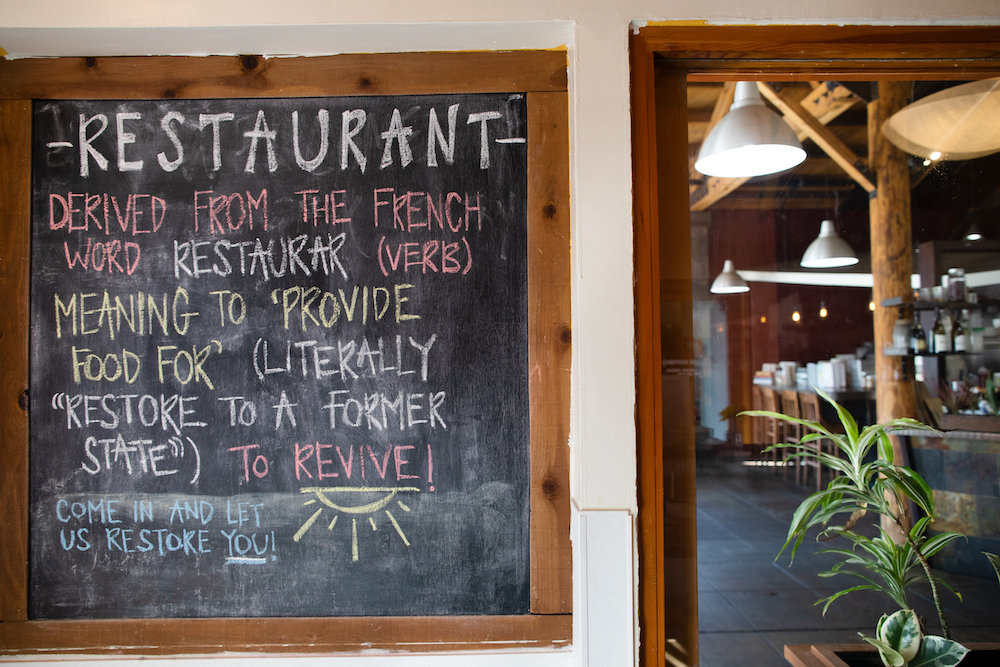 -RESTAURANT-
DERIVED FROM THE FRENCH
WORD RESTAURAR (VERB)
MEANING TO 'PROVIDE
FOOD FOR' (LITERALLY
"RESTORE TO A FORMER
STATE") TO REVIVE!
COME IN AND LET
US RESTORE YOU!